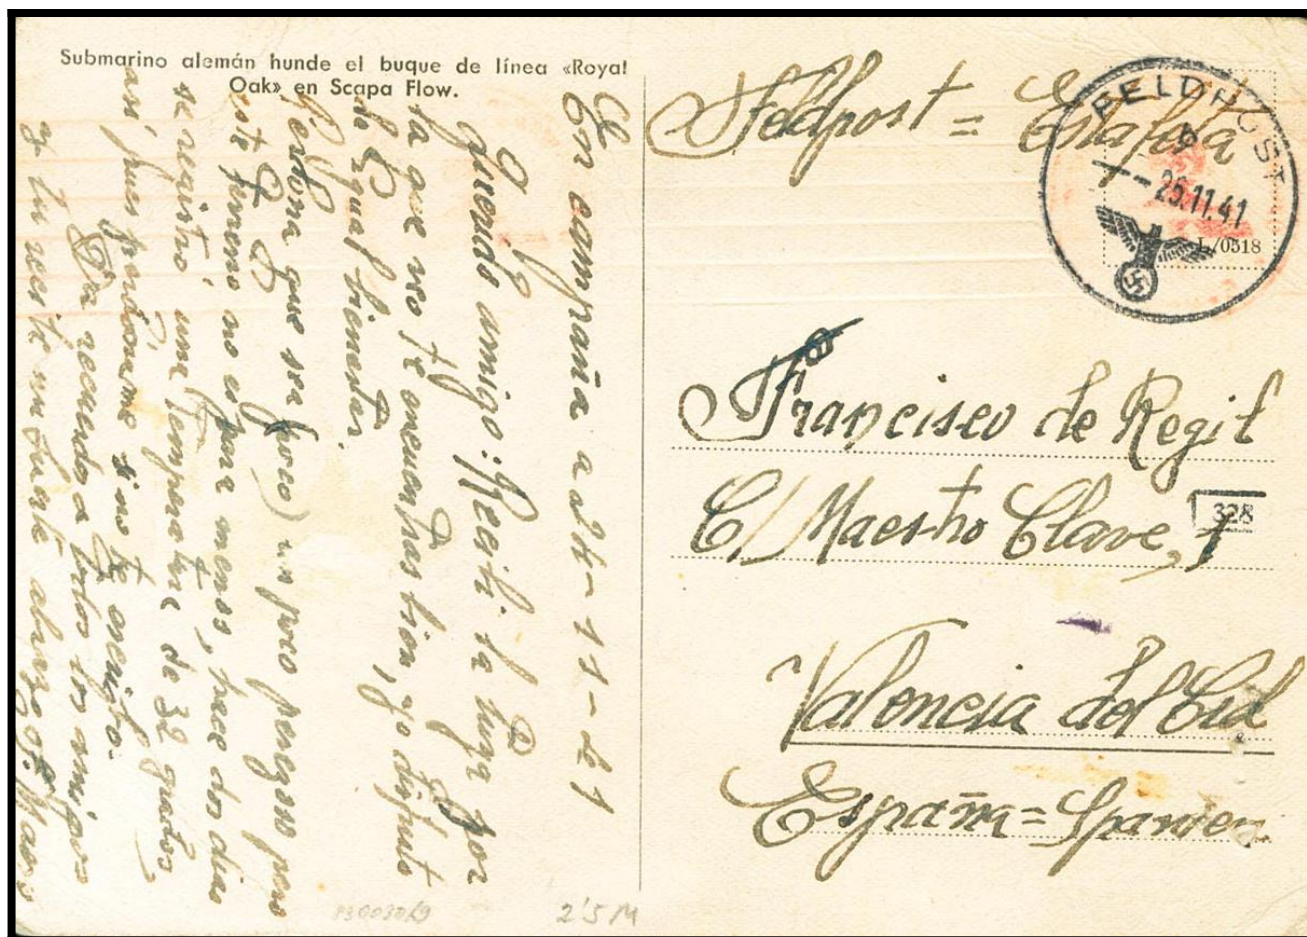 Submarino alemán hunde el buque de línea «Royal
Oak» en Scapa Flow.
En campaña a 24-11-41
Querido amigo: Regil. la tuya por
la que veo te encuentras bien, yo disfruto
de igual bienestar.
Perdona que sea (poco) un poco perezoso pero
este terreno no es par menos, hace dos dias
se registró una temperatura de 32 grados
así pues perdoname si no te escribo.
Da recuerdo a todos los amigos
y tu recibe un fuerte abrazo
Feldpost = Estafeta
FELDPOST
b
25.11.41
L/0518
Francisco de Regil
C/ Maestro Clave, 1
328
Valencia del Cid
España = Spanien
2'5 M